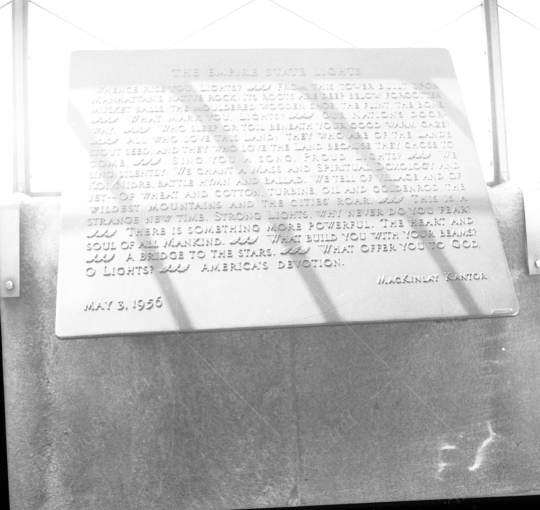 THE EMPIRE STATE LIGHTS
WHENCE RISE YOU, LIGHTS? FROM THIS TOWER BUILT UPON
MANHATTAN'S NATIVE ROCK. ITS ROOTS ARE DEEP BELOW FORGOTTEN
MUSKET BALLS, THE MOLDERED WOODEN SHOE, THE FLINT, THE BONE.
WHAT MARK YOU, LIGHTS? OUR NATION'S DOOR-
WAY. WHO SLEEP OR TOIL BENEATH YOUR GOOD WARM GAZE?
ALL WHO LOVE THIS LAND: THEY WHO ARE OF THE LAND'S
OWN SEED, AND THEY WHO LOVE THE LAND BECAUSE THEY CHOSE TO
COME. SING YOU A SONG, PROUD LIGHTS? WE
SING SILENTLY. WE CHANT A MASS AND SPIRITUAL, DOXOLOGY AND
KOL NIDRE, BATTLE HYMN AND BALLAD. WE TELL OF VILLAGE AND OF
JET—OF WHEAT AND COTTON, TURBINE, OIL AND GOLDENROD, THE
WILDEST MOUNTAINS AND THE CITIES' ROAR. THIS IS A
STRANGE NEW TIME. STRONG LIGHTS, WHY NEVER DO YOU FEAR?
THERE IS SOMETHING MORE POWERFUL. THE HEART AND
SOUL OF ALL MANKIND. WHAT BUILD YOU WITH YOUR BEAMS?
A BRIDGE TO THE STARS. WHAT OFFER YOU TO GOD,
O LIGHTS? AMERICA'S DEVOTION.
MACKINLAY KANTOR
MAY 3, 1956